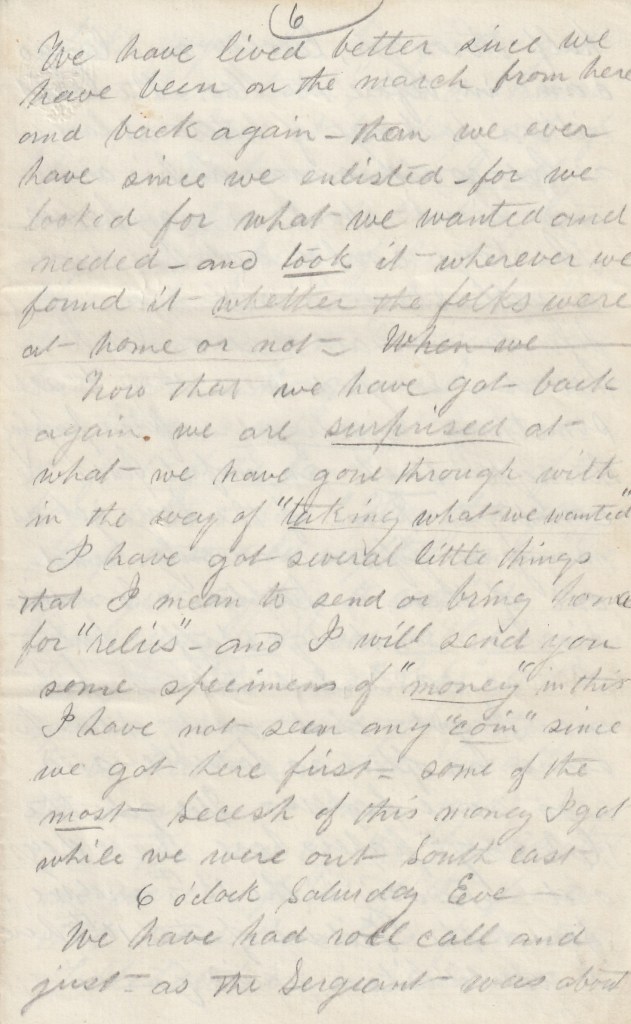 6
We have lived better since we
have been on the march from here
and back again - than we ever
have since we enlisted - for we
looked for what we wanted and
needed - and took it - wherever we
found it - whether the folks were
at home or not - When we
Now that we have got back
again we are surprised at
what we have gone through with
in the way of "taking what we wanted"
I have got several little things
that I mean to send or bring home
for "relics" - and I will send you
some specimens of "money" in this
I have not seen any "coin" since
we got here first - some of the
most Secesh of this money I got
while we were out South east
6 o'clock Saturday Eve -
We have had roll call and
just - as the Sergeant was about